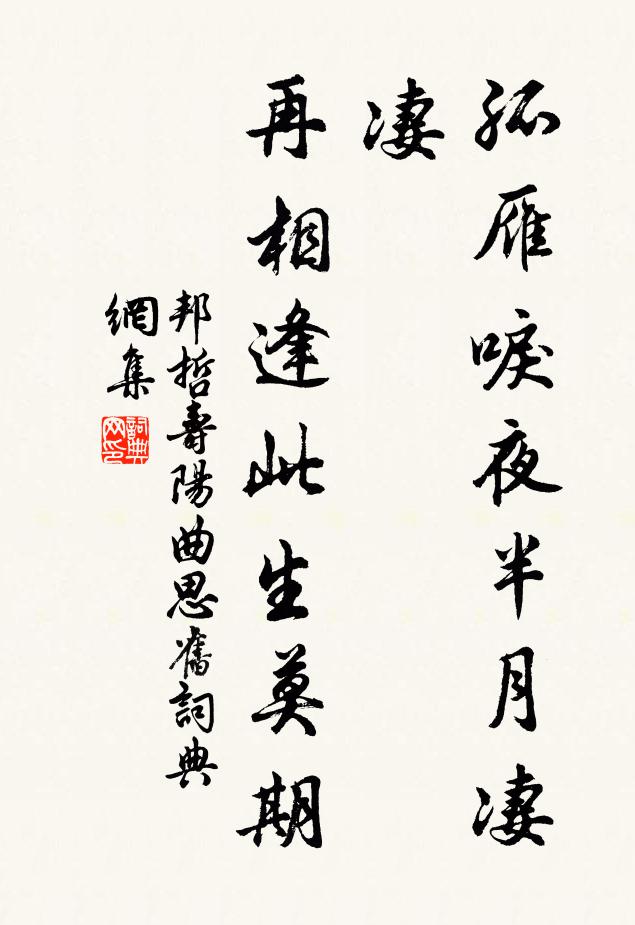 孤雁唳夜半月凄
凄
再相逢此生莫期
邦哲壽陽曲思舊詞典
網集
詞典
网印